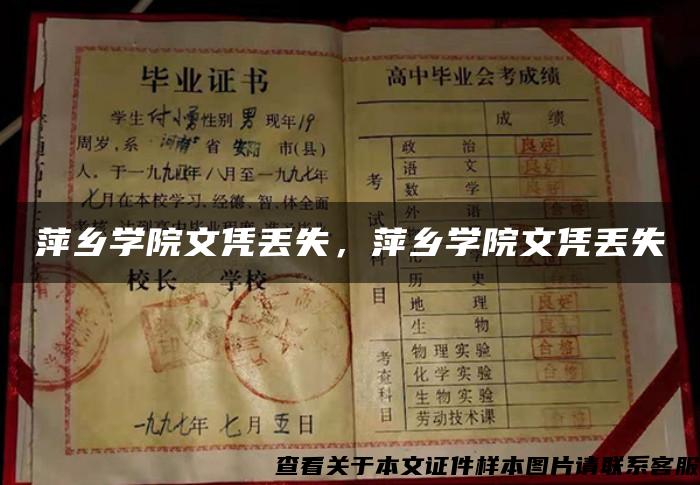 毕业证书
学生付小勇性别男现年19
周岁,系河南省安阳市(县)
人。于一九九四年八月至一九九七年
七月在本校学习,经德、智、体全面
萍乡学院文凭丢失，萍乡学院文凭丢失
校长 学校
一九九七年七月五日
高中毕业会考成绩
成绩
考试科目
政治 良好
语文 良好
数学 良好
外语 合格
历史
地理 良好
生物 良好
考查科目
物理实验 合格
化学实验 合格
生物实验
劳动技术课 合格
查看关于本文证件样本图片请联系客服